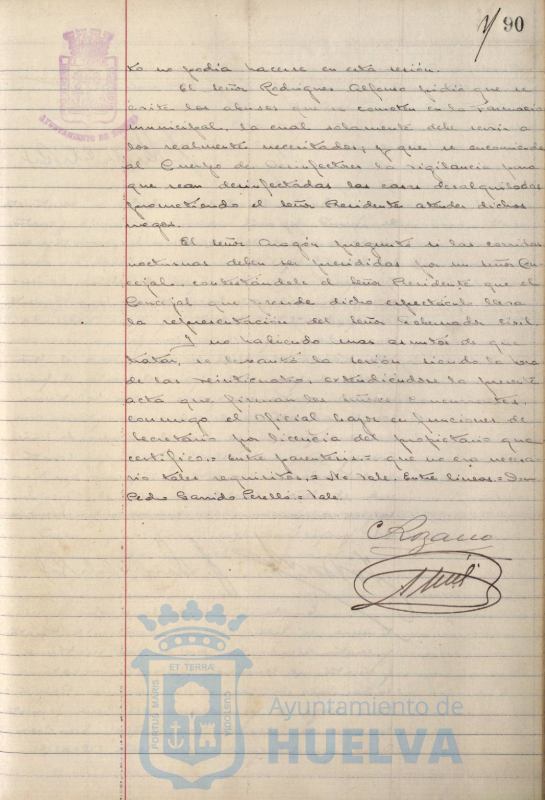 90
to no podía hacerse en esta sesión.
El señor Rodríguez Alfonso pidió que se
evite los abusos que se cometen en la Farmacia
municipal, la cual solamente debe servir a
los realmente necesitados, y que se encomiende
al Cuerpo de Desinfectores la vigilancia para
que sean desinfectadas las casas desalquiladas
prometiendo el señor Presidente atender dichos
ruegos.
El señor Aragón pregunta si las corridas
nocturnas deben ser presididas por un señor Con-
cejal, contestándole el Señor Presidente que el
Concejal que preside dicho espectáculo lleva
la representación del Señor Gobernador civil.
Y no habiendo mas asuntos de que
tratar, se levantó la sesión siendo la hora
de las veinticuatro, extendiéndose la presente
acta que firman los señores concurrentes,
conmigo el oficial mayor en funciones de
Secretario por licencia del propietario que
certifico.= Entre parentesis.= que no era necesa-
rio tales requisitos.= No Vale. Entre lineas.=
Pedro Garrido Perelló.= Vale.
AYUNTAMIENTO DE
PORTUS MARIS ET TERRÆ CUSTODIA
Ayuntamiento de
HUELVA